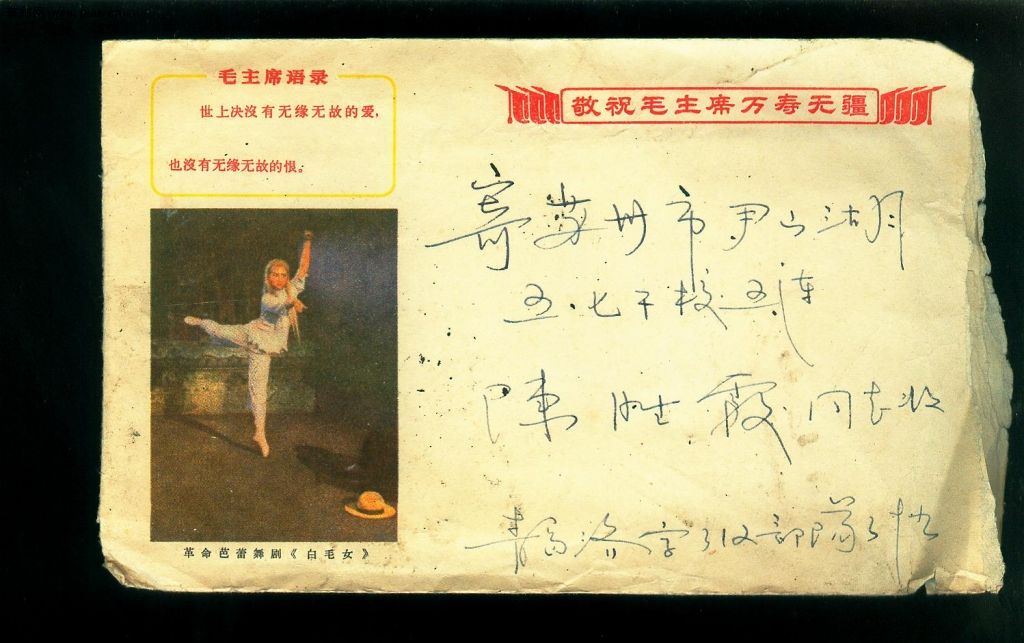 毛主席语录
世上决沒有无缘无故的爱,
也沒有无缘无故的恨。
敬祝毛主席万寿无疆
寄苏州市尹山湖
五·七干校五连
陳胜霞同志收
部隊
革命芭蕾舞剧《白毛女》